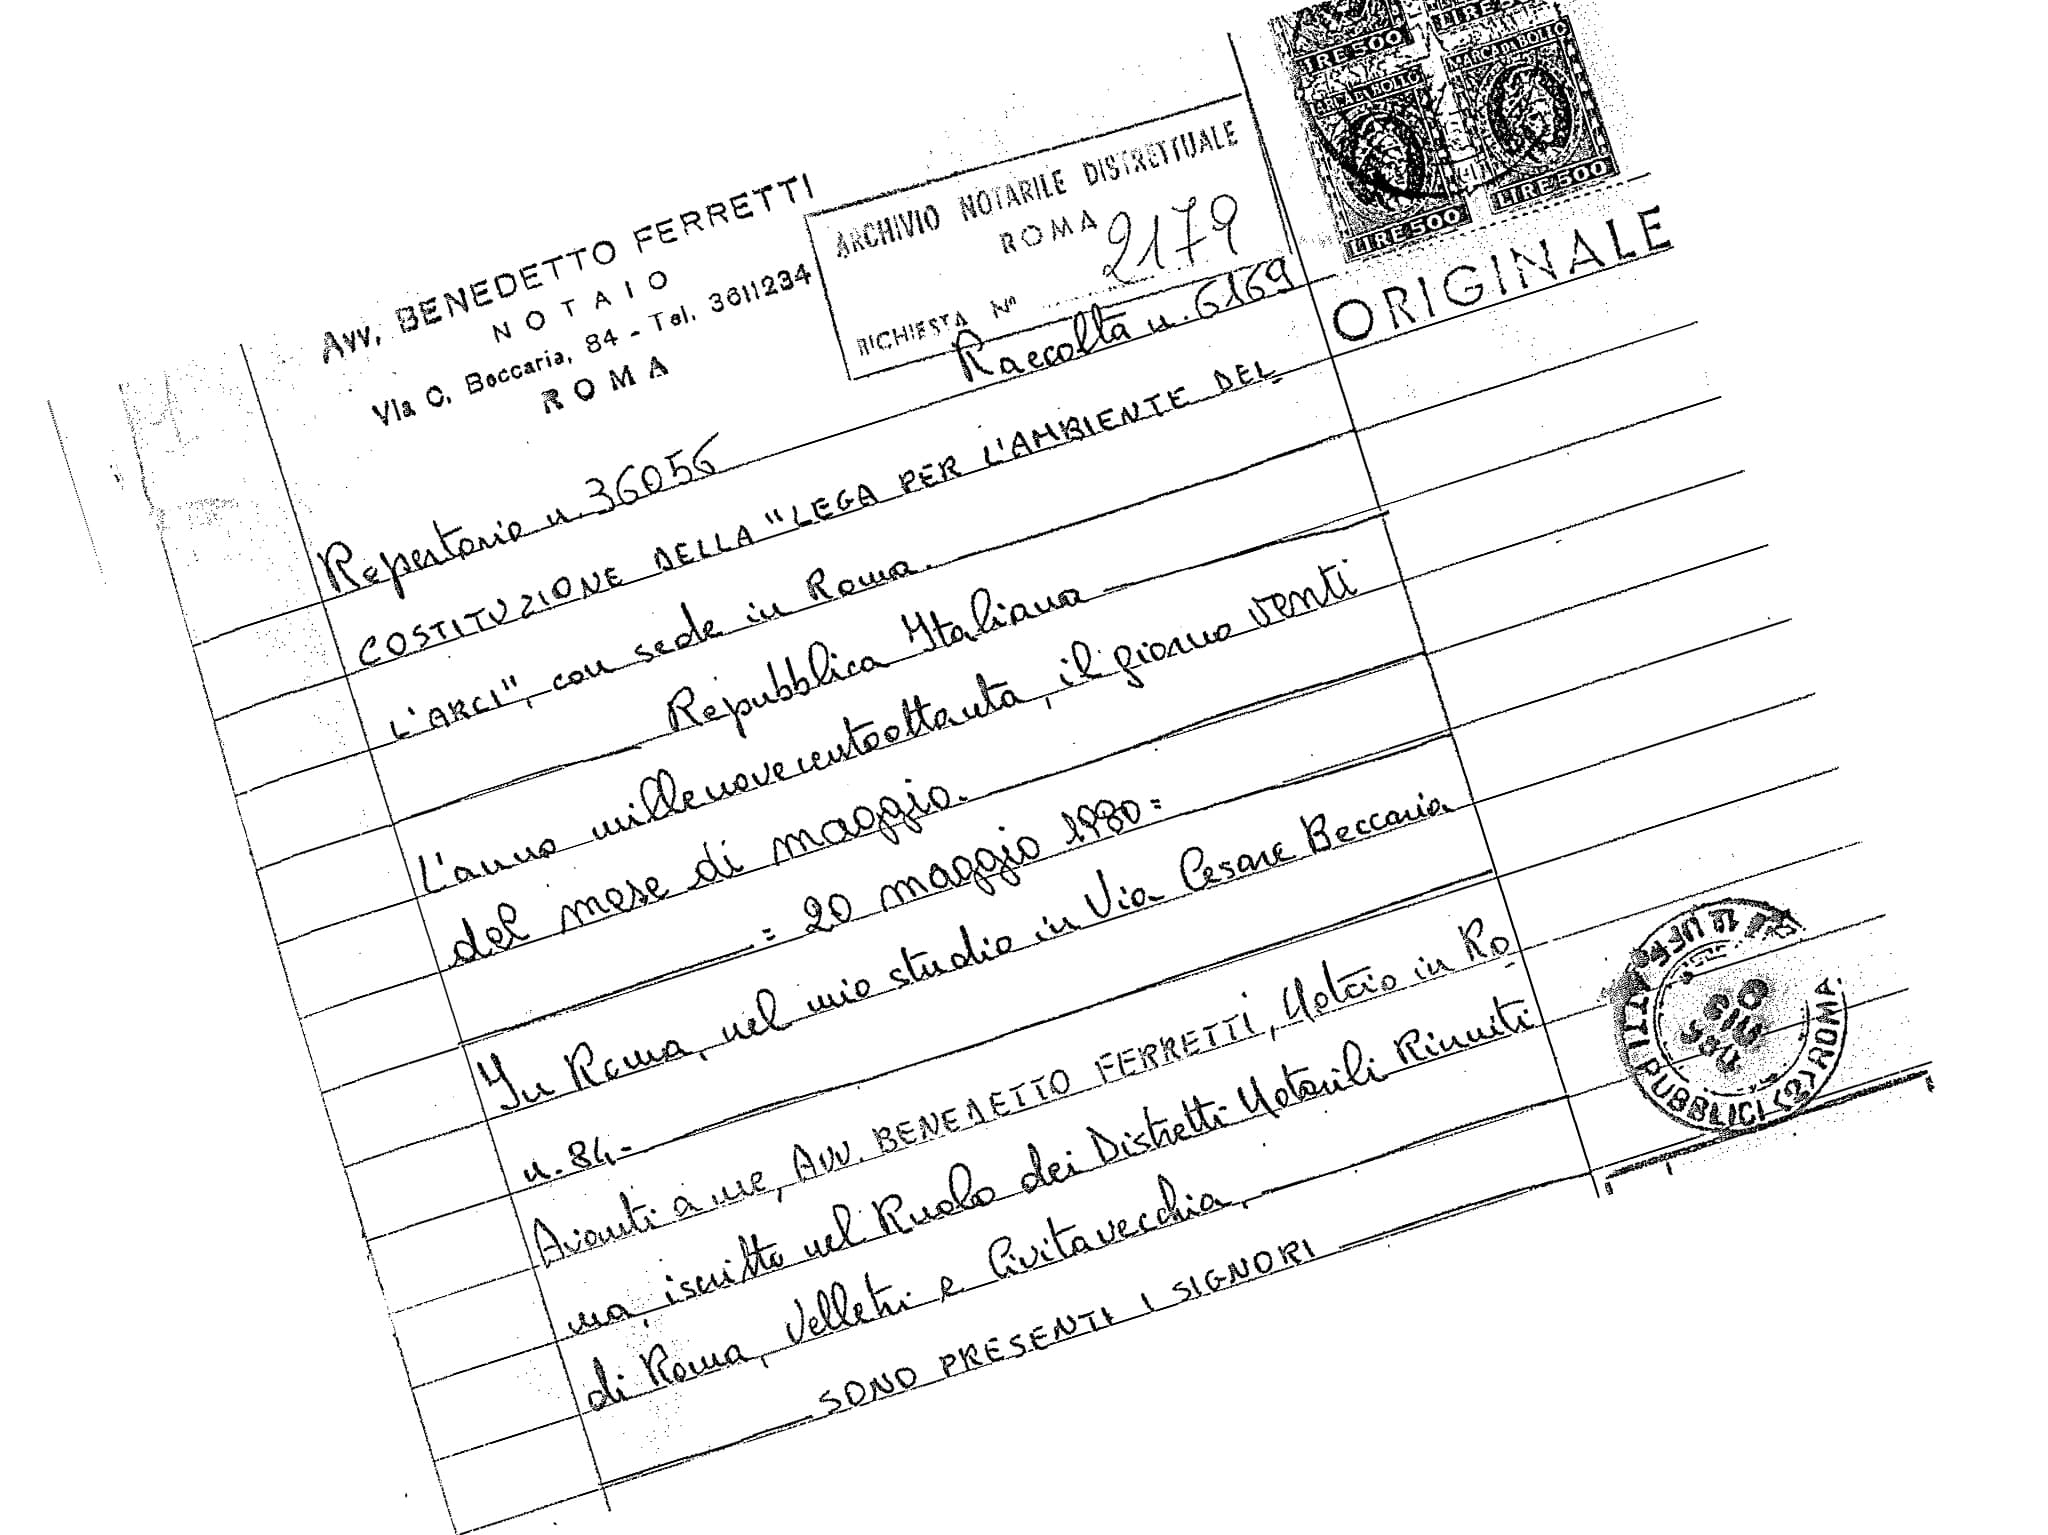 LIRE 500
LIRE 500
MARCA DA BOLLO
MARCA DA BOLLO
LIRE 500
LIRE 500
Avv. BENEDETTO FERRETTI
NOTAIO
Via C. Beccaria, 84 - Tel. 3611234
ROMA
ARCHIVIO NOTARILE DISTRETTUALE
ROMA
RICHIESTA N° 2179
ORIGINALE
Repertorio n. 36056 Raccolta n. 6169
COSTITUZIONE DELLA "LEGA PER L'AMBIENTE DEL
L'ARCI", con sede in Roma.
Repubblica Italiana
L'anno millenovecentoottanta, il giorno venti
del mese di maggio.
= 20 maggio 1980 =
In Roma, nel mio studio in Via Cesare Beccaria
n. 84.
Avanti a me, Avv. BENEDETTO FERRETTI, Notaio in Ro
ma, iscritto nel Ruolo dei Distretti Notarili Riuniti
di Roma, Velletri e Civitavecchia,
SONO PRESENTI I SIGNORI
ATTI PUBBLICI (2) ROMA